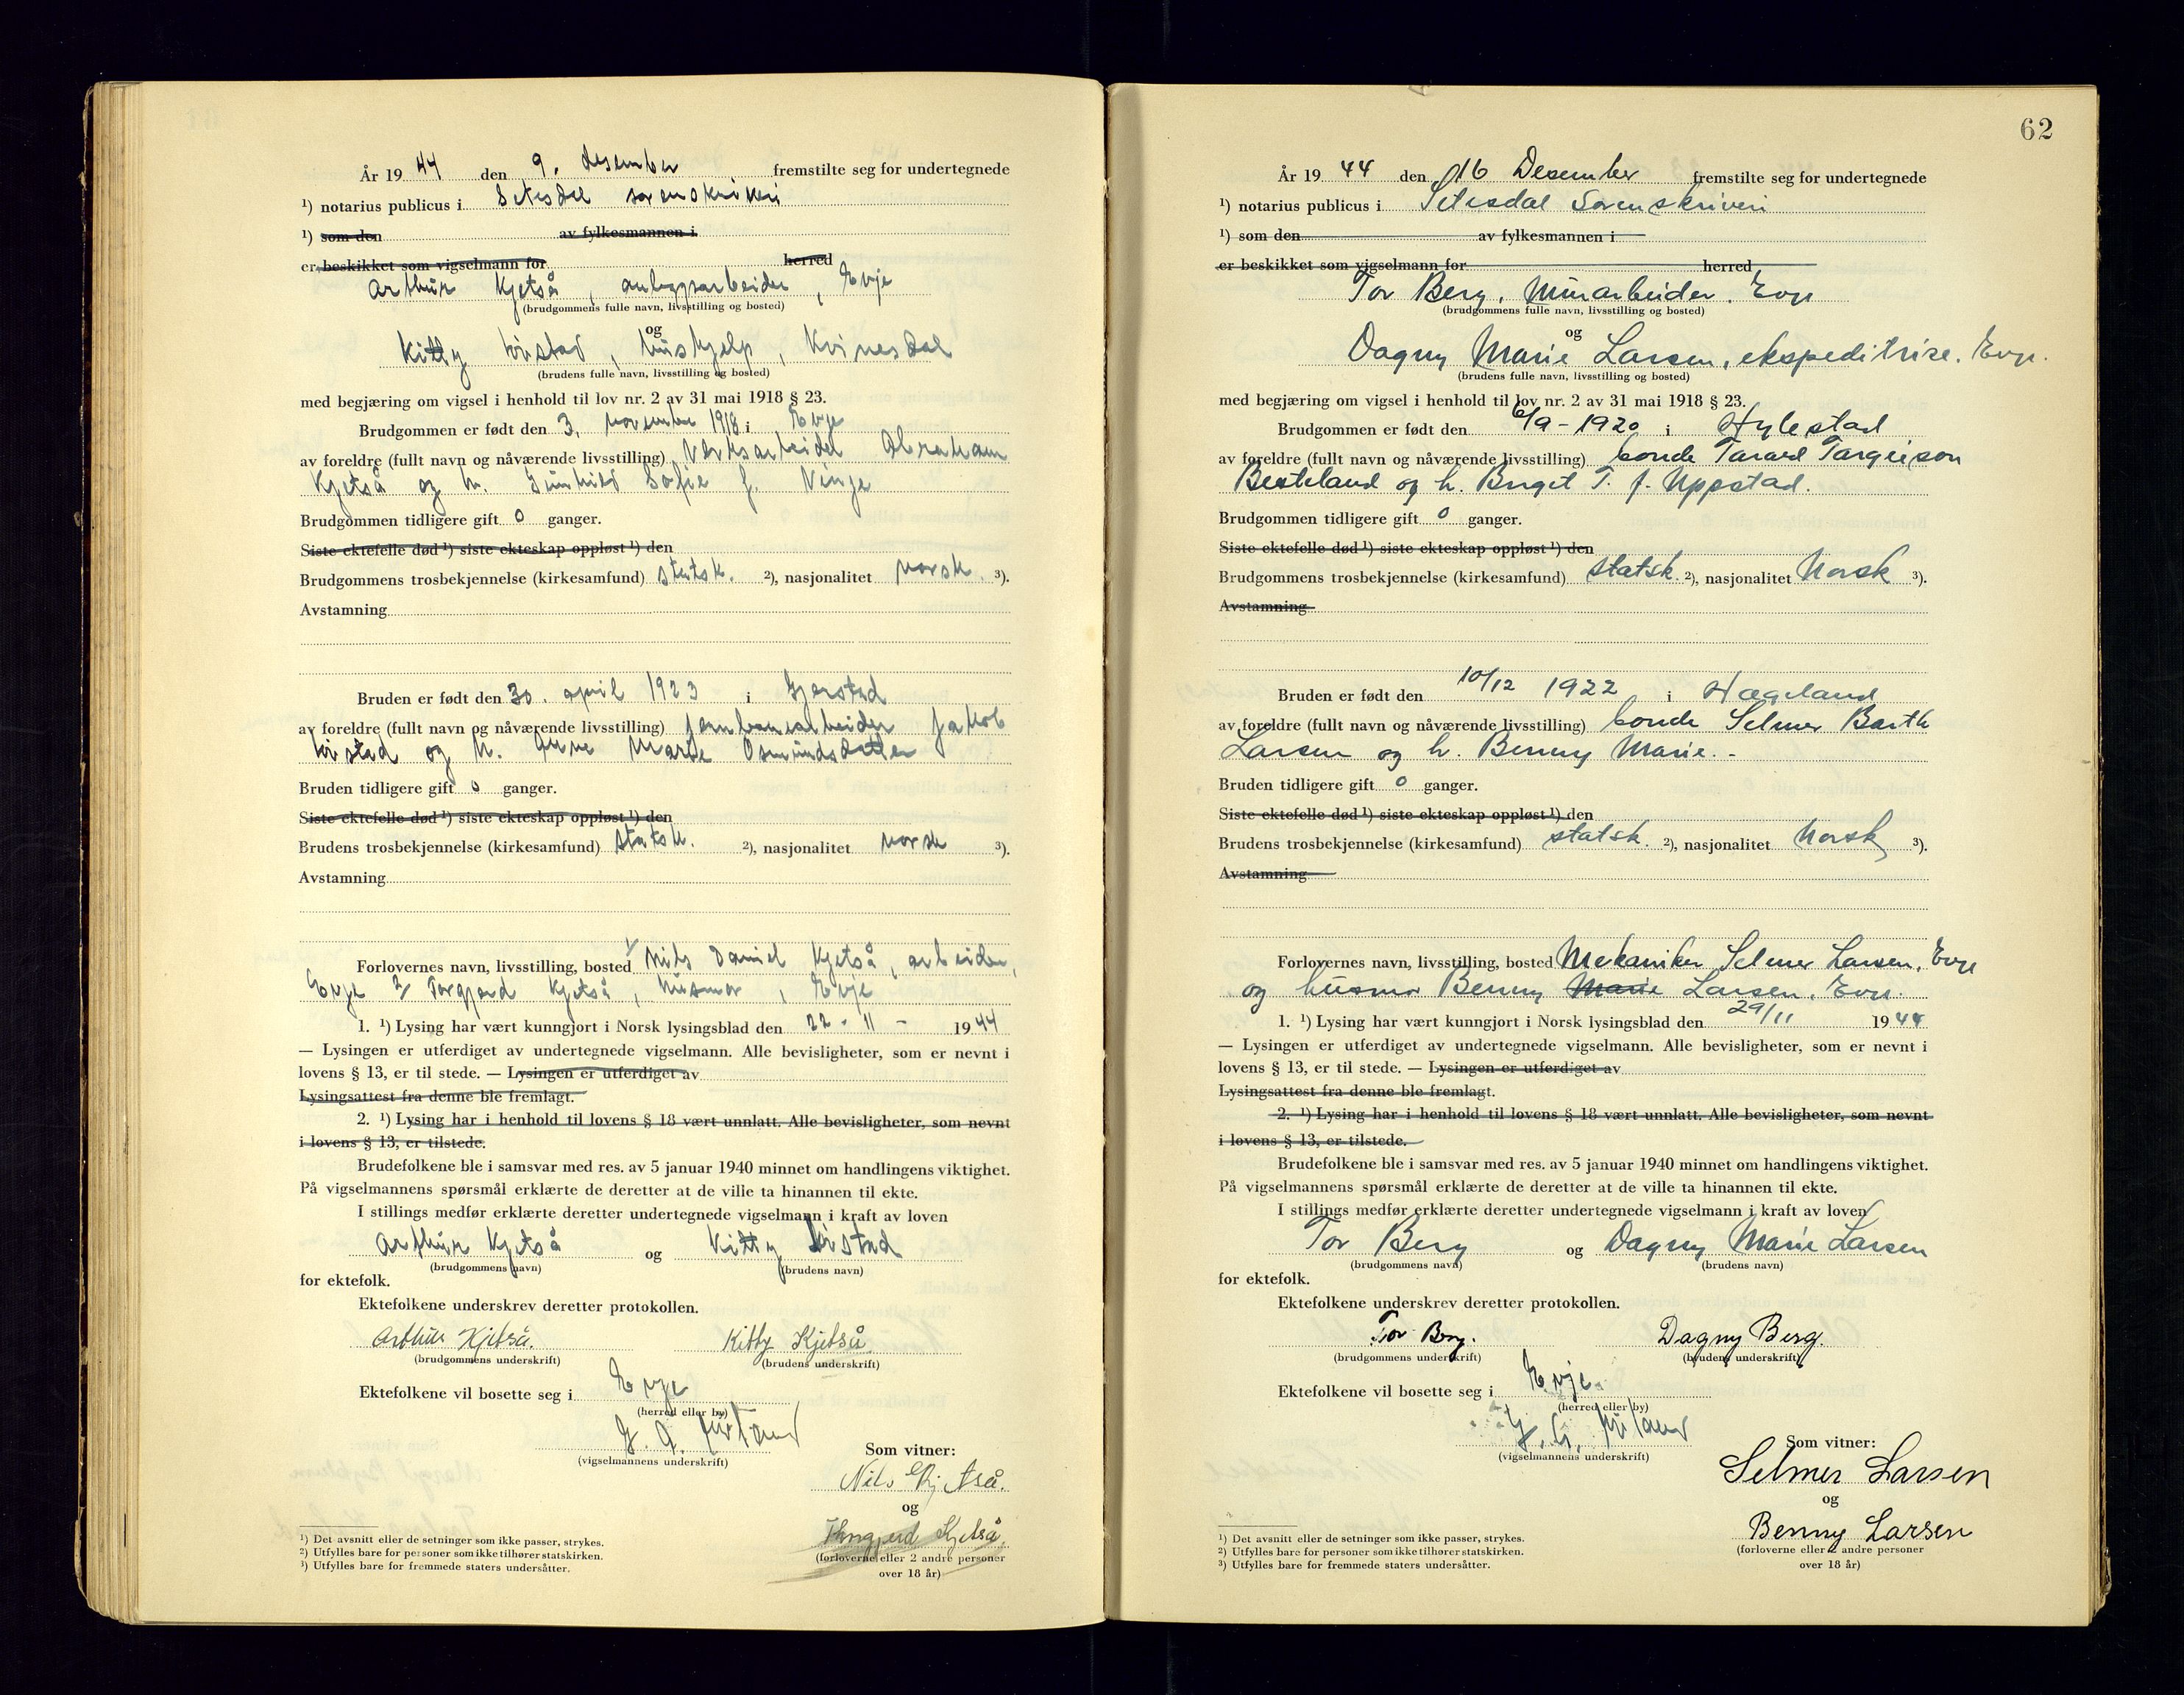 År 19 44 den 9. desember fremstilte seg for undertegnede
¹) notarius publicus i Setesdal sorenskriveri
¹) som den av fylkesmannen i
er beskikket som vigselmann for herred
Arthur Kjetså, anleggsarbeider, Evje
(brudgommens fulle navn, livsstilling og bosted)
og
Kitty , hushjelp, Kvinesdal
(brudens fulle navn, livsstilling og bosted)
med begjæring om vigsel i henhold til lov nr. 2 av 31 mai 1918 § 23.
Brudgommen er født den 3. november 1918 i Evje
av foreldre (fullt navn og nåværende livsstilling) Verksarbeider Abraham
Kjetså og h. Gunhild Sofie f. Vinje
Brudgommen tidligere gift 0 ganger.
Siste ektefelle død ¹) siste ekteskap oppløst ¹) den
Brudgommens trosbekjennelse (kirkesamfund) statsk. ²), nasjonalitet norsk. ³).
Avstamning
Bruden er født den 30. april 1923 i Gjerstad
av foreldre (fullt navn og nåværende livsstilling) jernbanearbeider Jakob
og h. Anne Marie Osmundsdatter
Bruden tidligere gift 0 ganger.
Siste ektefelle død ¹) siste ekteskap oppløst ¹) den
Brudens trosbekjennelse (kirkesamfund) statsk. ²), nasjonalitet norsk ³).
Avstamning
Forlovernes navn, livsstilling, bosted 1/ Nils Daniel Kjetså, arbeider,
Evje 2/ Torgjerd Kjetså, husmor, Evje
1. ¹) Lysing har vært kunngjort i Norsk lysingsblad den 22 - 11 - 19 44
— Lysingen er utferdiget av undertegnede vigselmann. Alle bevisligheter, som er nevnt i
lovens § 13, er til stede. — Lysingen er utferdiget av
Lysingsattest fra denne ble fremlagt.
2. ¹) Lysing har i henhold til lovens § 18 vært unnlatt. Alle bevisligheter, som nevnt
i lovens § 13, er tilstede.
Brudefolkene ble i samsvar med res. av 5 januar 1940 minnet om handlingens viktighet.
På vigselmannens spørsmål erklærte de deretter at de ville ta hinannen til ekte.
I stillings medfør erklærte deretter undertegnede vigselmann i kraft av loven
Arthur Kjetså og Kitty
(brudgommens navn) (brudens navn)
for ektefolk.
Ektefolkene underskrev deretter protokollen.
Arthur Kjetså. Kitty Kjetså
(brudgommens underskrift) (brudens underskrift)
Ektefolkene vil bosette seg i Evje
(herred eller by)
(vigselmannens underskrift)
Som vitner:
Nils Kjetså.
og
Thorgjerd Kjetså
(forloverne eller 2 andre personer
over 18 år)
¹) Det avsnitt eller de setninger som ikke passer, strykes.
²) Utfylles bare for personer som ikke tilhører statskirken.
³) Utfylles bare for fremmede staters undersåtter.
62
År 19 44 den 16 Desember fremstilte seg for undertegnede
¹) notarius publicus i Setesdal Sorenskriveri
¹) som den av fylkesmannen i
er beskikket som vigselmann for herred
Tor Berg, Murarbeider. Evje
(brudgommens fulle navn, livsstilling og bosted)
og
Dagny Marie Larsen, ekspeditrise. Evje.
(brudens fulle navn, livsstilling og bosted)
med begjæring om vigsel i henhold til lov nr. 2 av 31 mai 1918 § 23.
Brudgommen er født den 6/9 - 1920 i Hylestad
av foreldre (fullt navn og nåværende livsstilling) bonde Tarald Targeison
Besteland og h. Birgit T. f. Uppstad.
Brudgommen tidligere gift 0 ganger.
Siste ektefelle død ¹) siste ekteskap oppløst ¹) den
Brudgommens trosbekjennelse (kirkesamfund) statsk. ²), nasjonalitet Norsk ³).
Avstamning
Bruden er født den 10/12 1922 i Hægeland
av foreldre (fullt navn og nåværende livsstilling) bonde Selmer Barth
Larsen og h. Benny Marie. -
Bruden tidligere gift 0 ganger.
Siste ektefelle død ¹) siste ekteskap oppløst ¹) den
Brudens trosbekjennelse (kirkesamfund) statsk. ²), nasjonalitet Norsk ³).
Avstamning
Forlovernes navn, livsstilling, bosted Mekaniker Selmer Larsen, Evje
og husmor Benny Marie Larsen. Evje.
1. ¹) Lysing har vært kunngjort i Norsk lysingsblad den 29/11 19 44
— Lysingen er utferdiget av undertegnede vigselmann. Alle bevisligheter, som er nevnt i
lovens § 13, er til stede. — Lysingen er utferdiget av
Lysingsattest fra denne ble fremlagt.
2. ¹) Lysing har i henhold til lovens § 18 vært unnlatt. Alle bevisligheter, som nevnt
i lovens § 13, er tilstede.
Brudefolkene ble i samsvar med res. av 5 januar 1940 minnet om handlingens viktighet.
På vigselmannens spørsmål erklærte de deretter at de ville ta hinannen til ekte.
I stillings medfør erklærte deretter undertegnede vigselmann i kraft av loven
Tor Berg og Dagny Marie Larsen
(brudgommens navn) (brudens navn)
for ektefolk.
Ektefolkene underskrev deretter protokollen.
Tor Berg. Dagny Berg.
(brudgommens underskrift) (brudens underskrift)
Ektefolkene vil bosette seg i Evje.
(herred eller by)
(vigselmannens underskrift)
Som vitner:
Selmer Larsen
og
Benny Larsen
(forloverne eller 2 andre personer
over 18 år)
¹) Det avsnitt eller de setninger som ikke passer, strykes.
²) Utfylles bare for personer som ikke tilhører statskirken.
³) Utfylles bare for fremmede staters undersåtter.